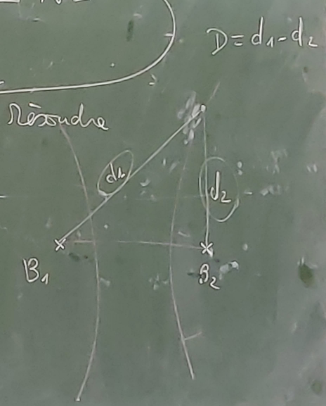 D = d1 - d2
Résoudre
d1
d2
B1
B2